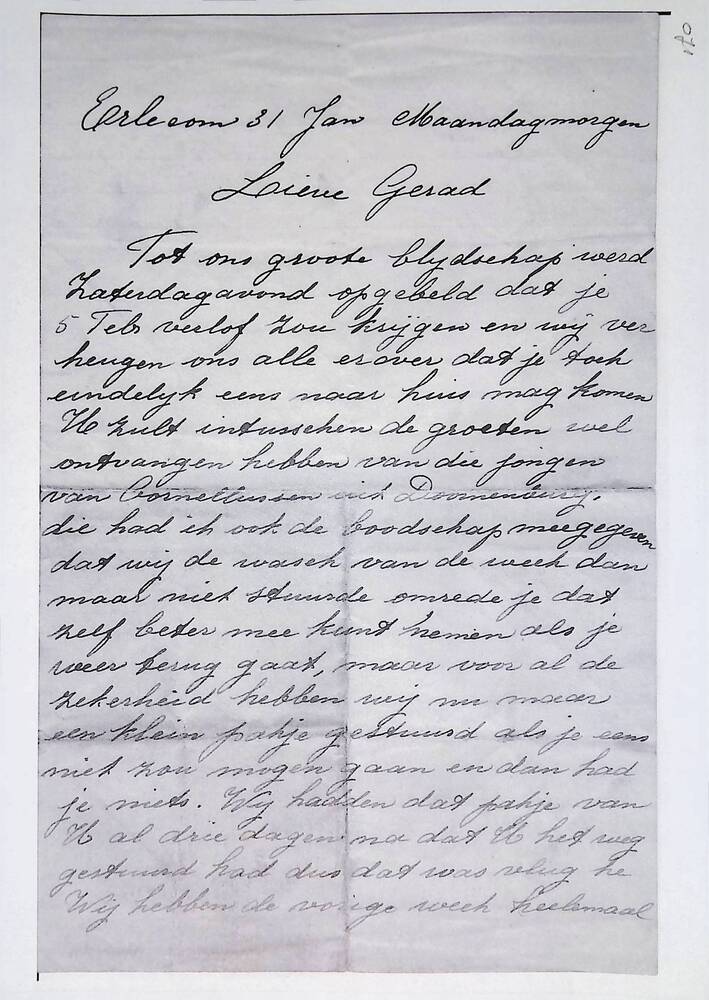 Erlecom 31 Jan Maandagmorgen
Lieve Gerad
Tot ons groote blydschap werd
Zaterdagavond opgebeld dat je
5 Feb verlof zou krijgen en wij ver
heugen ons alle erover dat je toch
eindelyk eens naar huis mag komen
U zult intusschen de groeten wel
ontvangen hebben van die jongen
van Cornelissen uit Doornenburg.
die had ik ook de boodschap meegegeven
dat wij de wasch van de week dan
maar niet stuurde omrede je dat
zelf beter mee kunt nemen als je
weer terug gaat, maar voor al de
zekerheid hebben wij nu maar
een klein pakje gestuurd als je eens
niet zou mogen gaan en dan had
je niets. Wij hadden dat pakje van
U al drie dagen na dat U het weg
gestuurd had dus dat was vlug he
Wij hebben de vorige week heelemaal